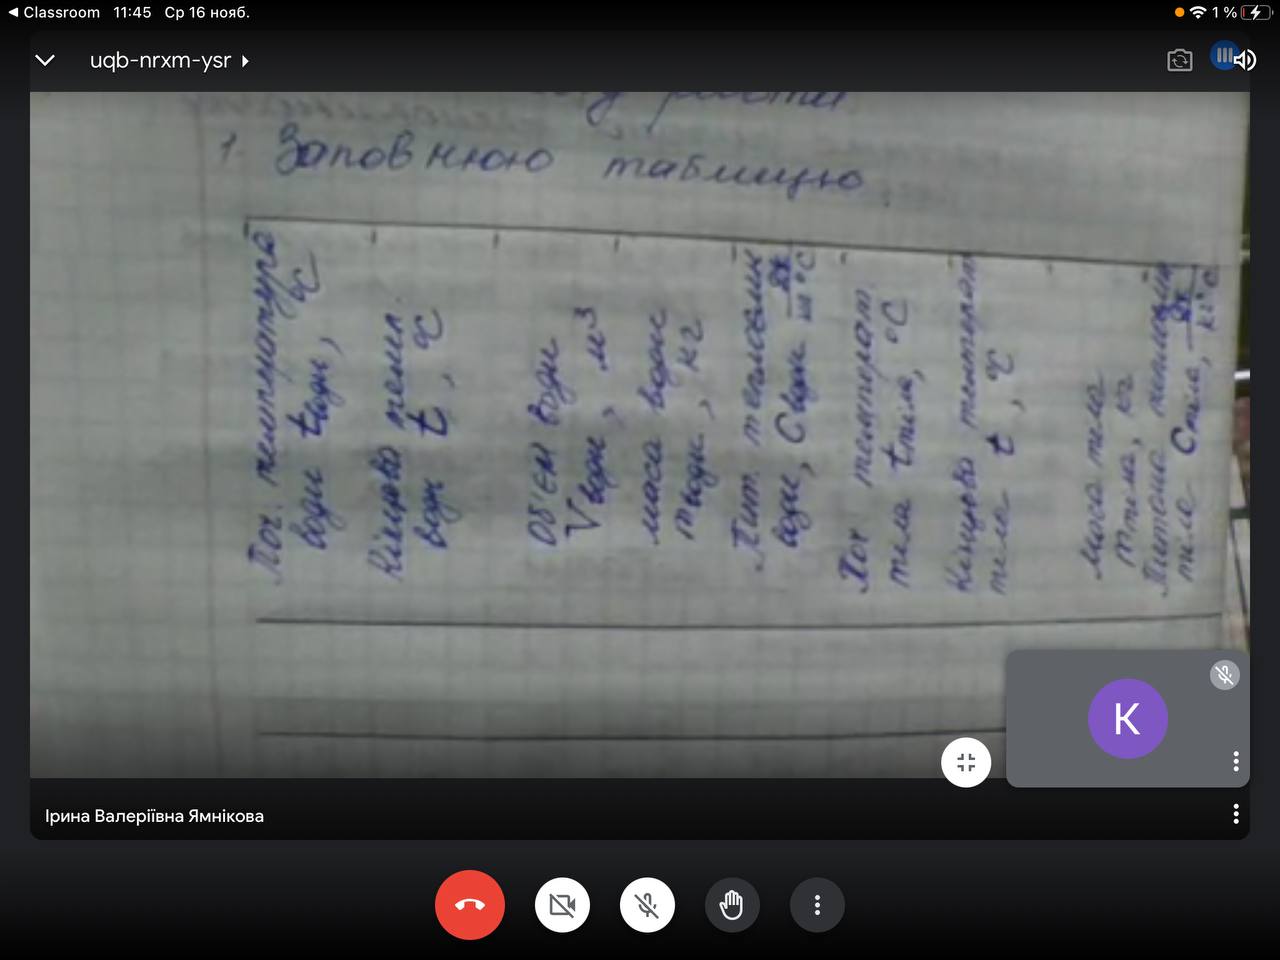 Classroom 11:45 Ср 16 нояб. 1 %
uqb-nrxm-ysr
роботи
1. Заповнюю таблицю.
Поч. температура
води tводи, °C
Кінцева
води t, °C
Об'єм води
Vводи, м³
маса води
mводи, кг
Пит. теплоємн
води, Cводи
Поч температ.
тіла tтіла, °C
Кінцева температ
тіла t, °C
маса тіла
mтіла, кг
Питома
тіла Cтіла,
K
Ірина Валеріївна Ямнікова